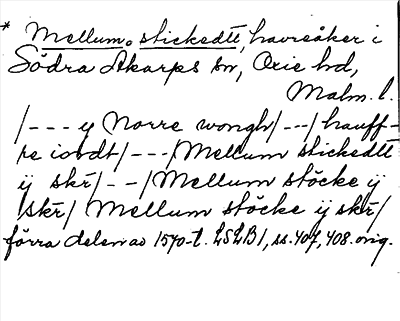 * Mellum. stickedtt, havreåker i
Södra Åkarps sn, Oxie hd,
Malm. l.
/--- y Norre wongh/---/hauff-
re iordt/---/Mellum stickedtt
ij skr/--/Mellum stöcke ij
skr/ Mellum stöcke ij skr/
förra delen av 1570-t. LSLB1, ss. 407, 408. orig.